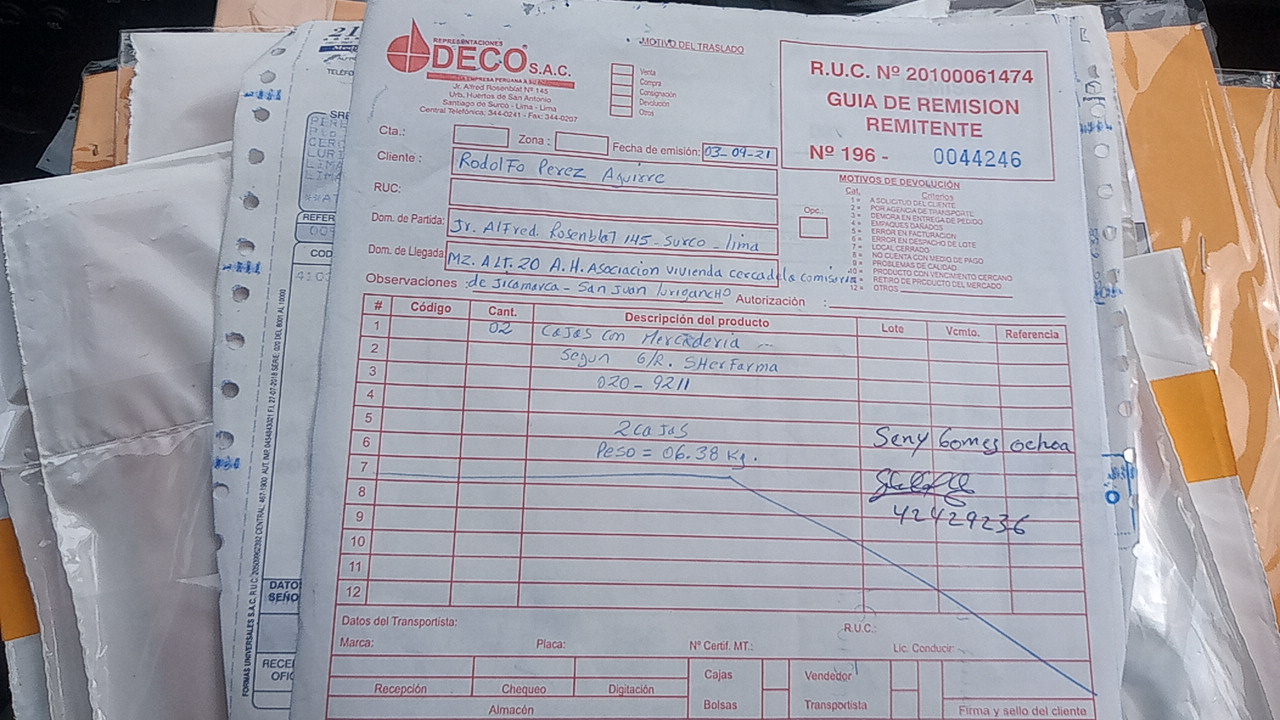 REPRESENTACIONES
DECO S.A.C.
Jr. Alfred Rosenblat Nº 145
Urb. Huertos de San Antonio
Santiago de Surco - Lima - Lima
Central Telefónica: 344-0241 - Fax: 344-0207
MOTIVO DEL TRASLADO
Venta
Compra
Consignación
Devolución
Otros
R.U.C. Nº 20100061474
GUIA DE REMISION
REMITENTE
Nº 196 - 0044246
Cta.:
Zona :
Fecha de emisión: 03-09-21
Cliente : Rodolfo Perez Aguirre
RUC:
Dom. de Partida: Jr. Alfred. Rosenblat 145 - Surco - lima
Dom. de Llegada: MZ. A LT. 20 A.H. Asociacion vivienda cerca de la comisaria
Observaciones : de Jicamarca - San Juan lurigancho
Autorización :
MOTIVOS DE DEVOLUCIÓN
Cat. Criterios
1 = A SOLICITUD DEL CLIENTE
2 = POR AGENCIA DE TRANSPORTE
3 = DEMORA EN ENTREGA DE PEDIDO
4 = EMPAQUES DAÑADOS
5 = ERROR EN FACTURACION
6 = ERROR EN DESPACHO DE LOTE
7 = LOCAL CERRADO
8 = NO CUENTA CON MEDIO DE PAGO
9 = PROBLEMAS DE CALIDAD
10 = PRODUCTO CON VENCIMIENTO CERCANO
11 = RETIRO DE PRODUCTO DEL MERCADO
12 = OTROS
Opc.:
# Código Cant. Descripción del producto Lote Vcmto. Referencia
1 02 cajas con Mercaderia
2 Segun G/R. SHerfarma
3 020-9211
4
5 2 cajas
6 Peso = 06.38 Kg. Seny Gomes ochoa
7
8
9 42429236
10
11
12
Datos del Transportista:
R.U.C.:
Marca:
Placa:
Nº Certif. MT.:
Lic. Conducir:
Recepción
Chequeo
Digitación
Almacén
Cajas
Bolsas
Vendedor
Transportista
Firma y sello del cliente
TELÉFO
REFER
COD
DATO
SEÑO
RECE
OFIC